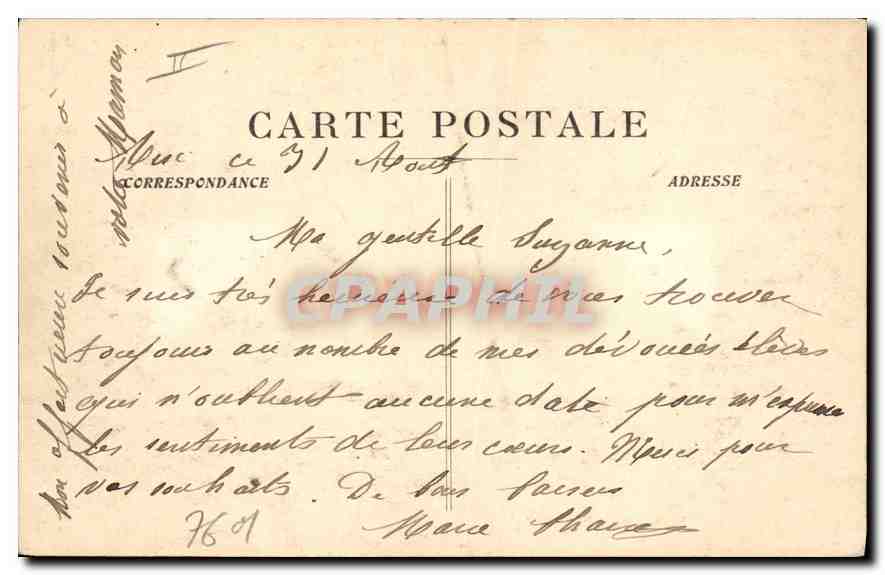 II
CARTE POSTALE
ce 31 Août
CORRESPONDANCE
ADRESSE
Ma gentille Suzanne,
CPAPHIL
Je suis très heureuse de vous trouver
toujours au nombre de mes dévouées élèves
qui n'oublient aucune date pour m'exprimer
les sentiments de leur cœurs. Merci pour
vos souhaits. De bons baisers
Marie
7601
Mon affectueux souvenir à
votre Maman